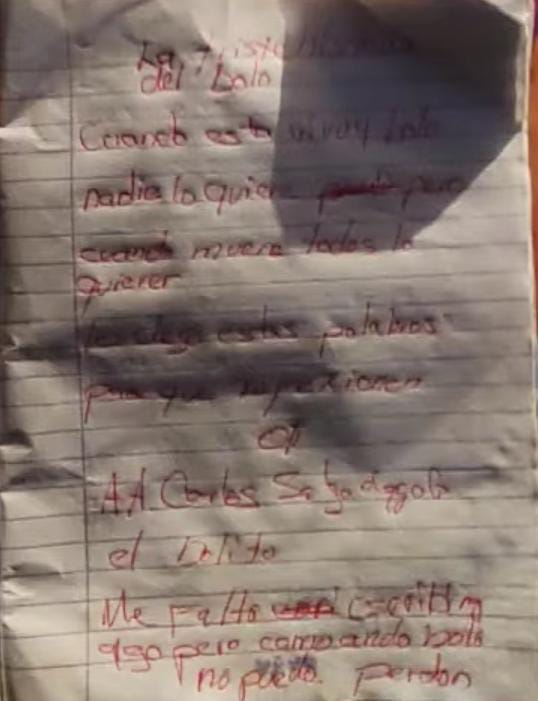 La Triste
del bolo
Cuando esta vivo y bolo
nadie lo quiere pero
muere todos lo
quieren
les dejo estas palabras
para que reflexionen
AA Carlos
el Bolito
Me falto escribir
algo pero como ando bolo
no puedo. Perdon